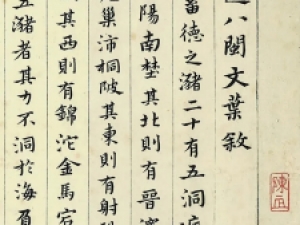 八閩文葉敘
畜德之瀦二十有五洞
陽南埜其北則有晉
巢沛桐陂其東則有射
其西則有錦沱金馬宕
五瀦者其力不洞於海